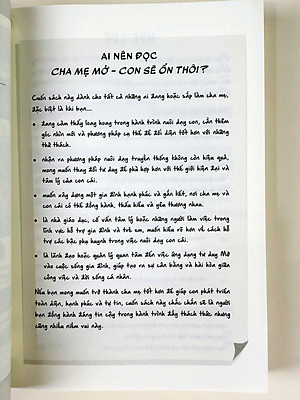 AI NÊN ĐỌC
CHA MẸ MỞ - CON SẼ ỔN THÔI?
Cuốn sách này dành cho tất cả những ai đang hoặc sắp làm cha mẹ,
đặc biệt là khi bạn...
• đang cảm thấy long hoang trong hành trình nuôi dạy con, cần thêm
góc nhìn mới và phương pháp cụ thể để đối diện tốt hơn với những
thử thách.
• nhận ra phương pháp nuôi dạy truyền thống không còn hiệu quả,
mong muốn thay đổi tư duy để phù hợp hơn với thế giới hiện đại và
tâm lý của con cái.
• muốn xây dựng một gia đình hạnh phúc và gắn kết, nơi cha mẹ và
con cái có thể đồng hành, thấu hiểu và yêu thương nhau.
• là nhà giáo dục, cố vấn tâm lý hoặc những người làm việc trong
lĩnh vực hỗ trợ gia đình và trẻ em, muốn hiểu rõ hơn về cách hỗ
trợ các bậc phụ huynh trong việc nuôi dạy con cái.
• là lãnh đạo hoặc quản lý quan tâm đến việc ứng dụng tư duy Mở
vào cuộc sống gia đình, giúp tạo ra sự cân bằng và hài hòa giữa
công việc và đời sống cá nhân.
Nếu bạn mong muốn trở thành cha mẹ tốt hơn để giúp con phát triển
toàn diện, hạnh phúc và tự tin, cuốn sách này chắc chắn sẽ là người
bạn đồng hành đáng tin cậy trong hành trình đầy thách thức nhưng
cũng nhiều niềm vui này.